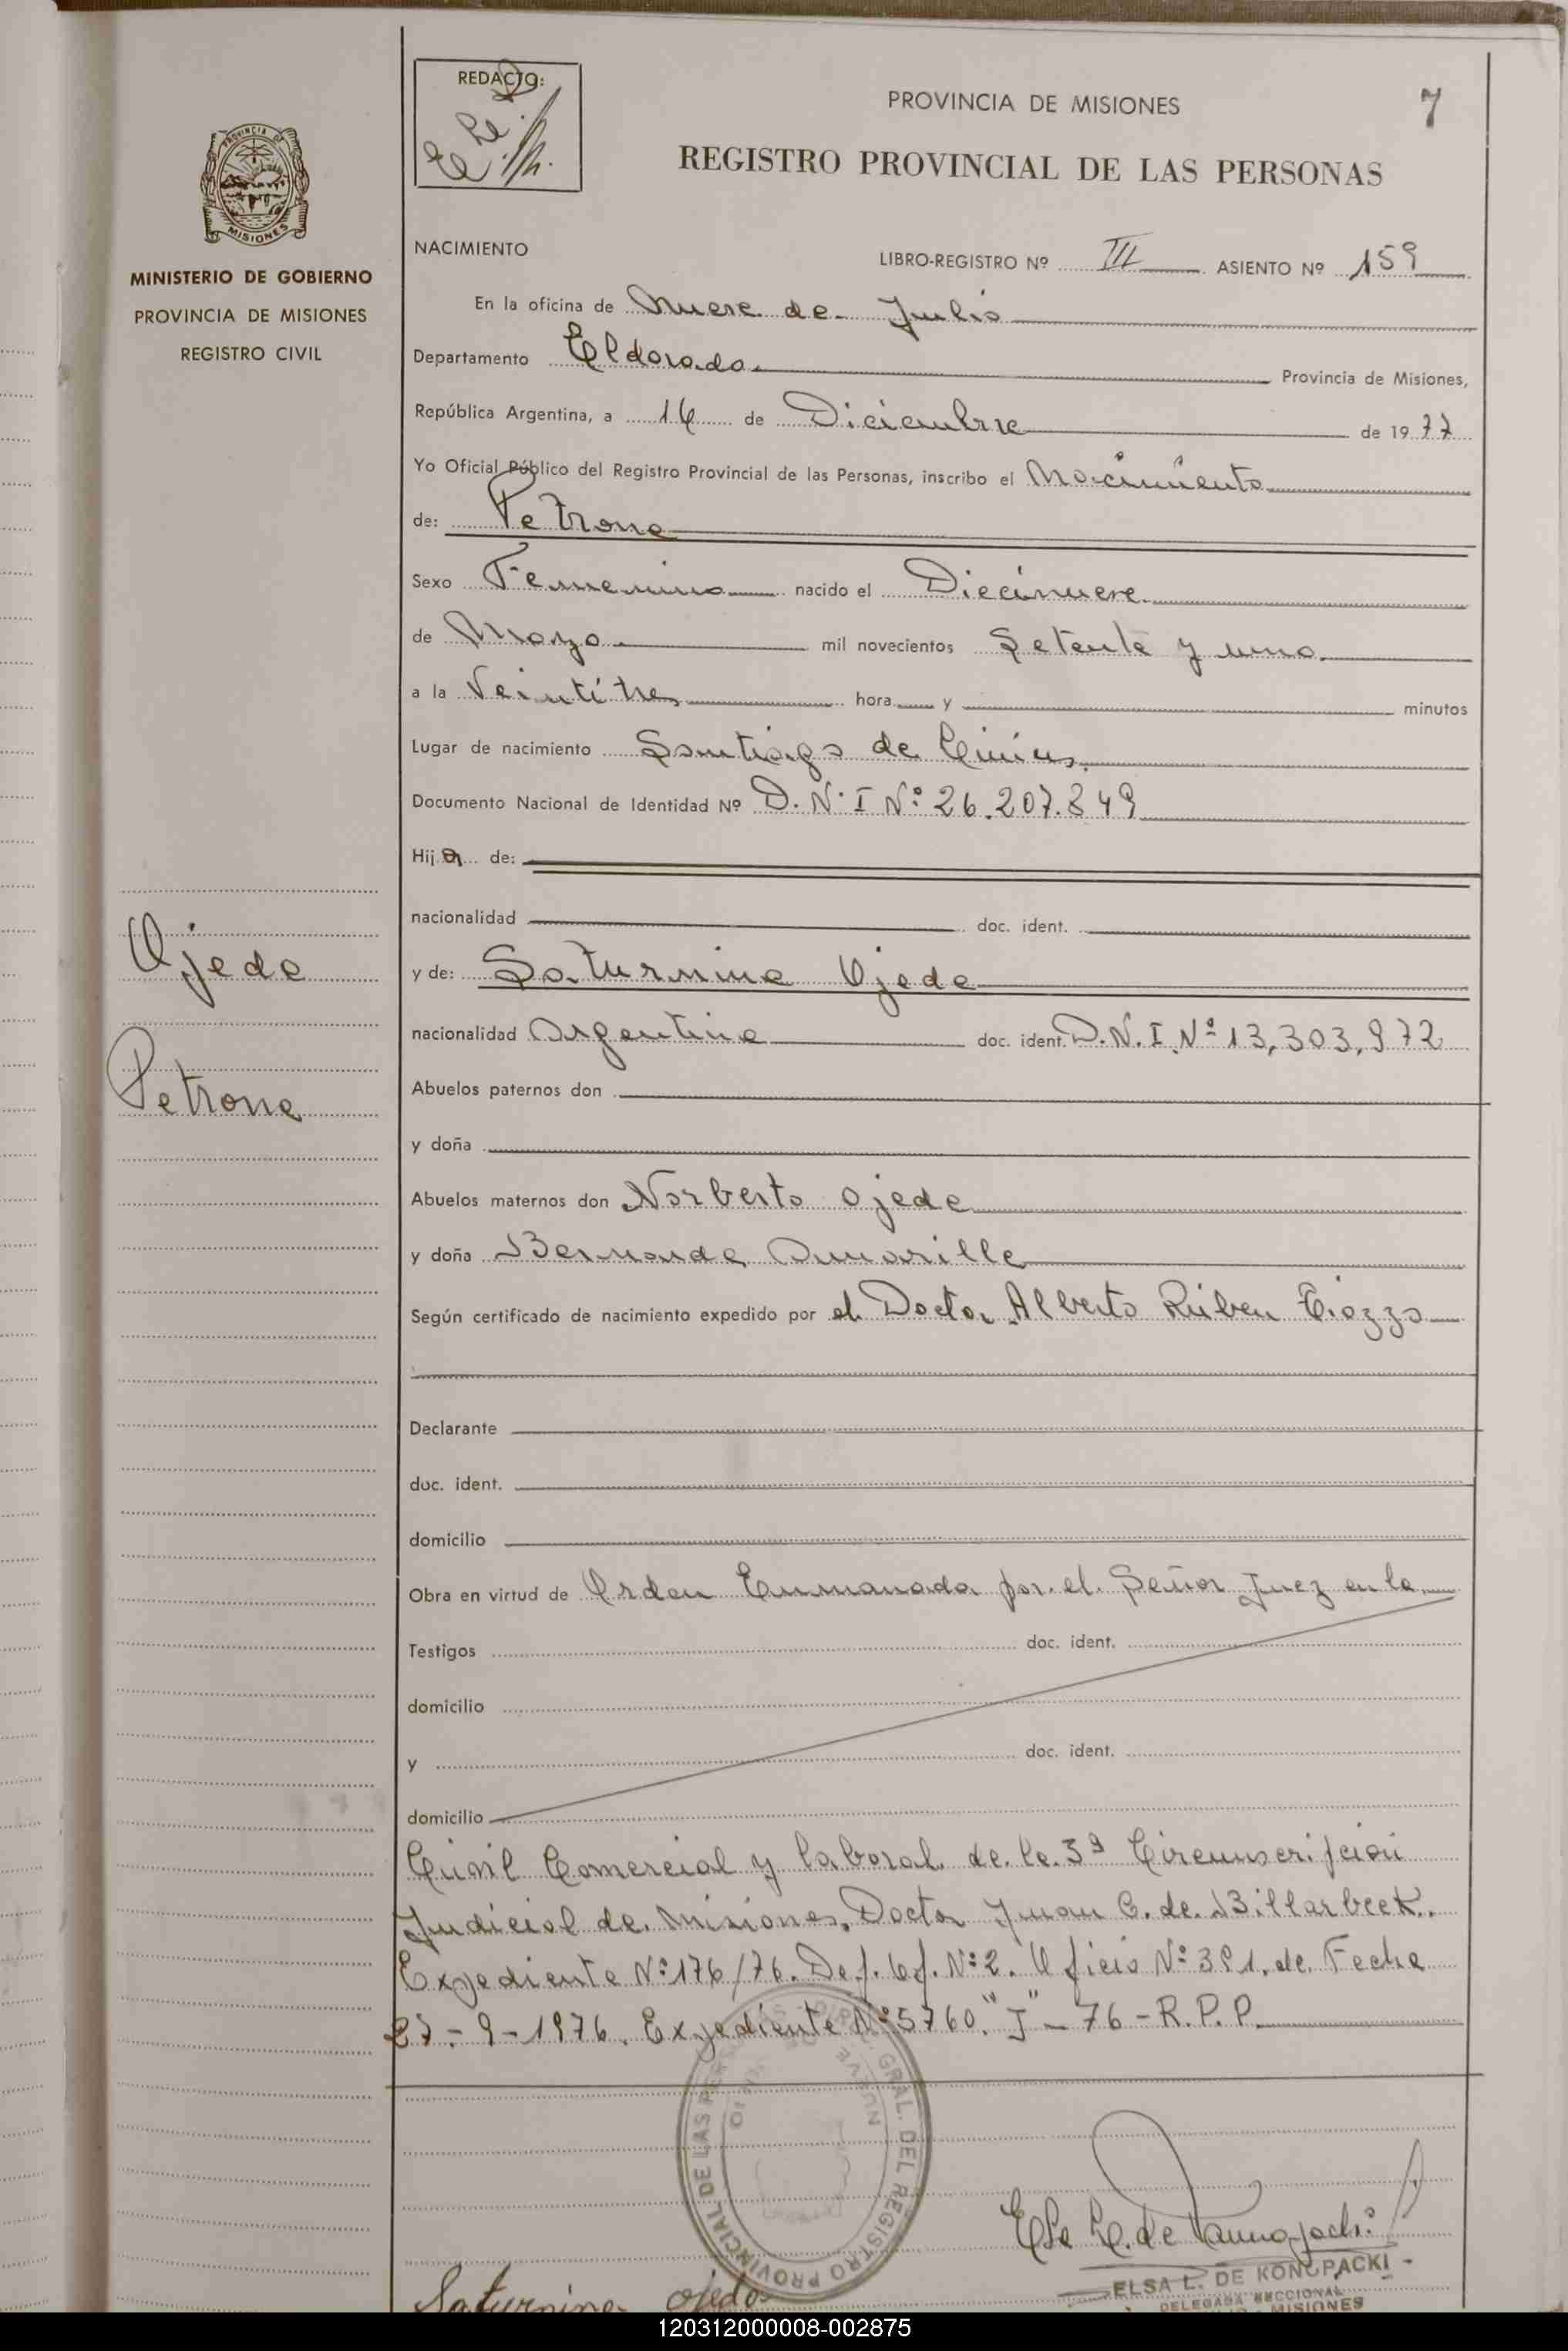 REDACTO:
PROVINCIA DE MISIONES
7
REGISTRO PROVINCIAL DE LAS PERSONAS
MISIONES
MINISTERIO DE GOBIERNO
PROVINCIA DE MISIONES
REGISTRO CIVIL
NACIMIENTO
LIBRO-REGISTRO Nº III ASIENTO Nº 159
En la oficina de Nueve de Julio
Departamento Eldorado Provincia de Misiones,
República Argentina, a 16 de Diciembre de 1977
Yo Oficial Público del Registro Provincial de las Personas, inscribo el Nacimiento
de: Petrona
Sexo Femenino nacido el Diecinueve
de Marzo mil novecientos Setenta y uno
a la Veintitres hora y minutos
Lugar de nacimiento Santiago de Liniers
Documento Nacional de Identidad Nº D.N.I Nº 26.207.849
Hija de:
nacionalidad doc. ident.
Ojeda
y de: Saturnina Ojeda
nacionalidad Argentina doc. ident. D.N.I. Nº 13,303,972
Petrona
Abuelos paternos don
y doña
Abuelos maternos don Norberto Ojeda
y doña Bernarda Amarilla
Según certificado de nacimiento expedido por el Doctor Alberto Rúben
Declarante
doc. ident.
domicilio
Obra en virtud de Orden Enmanada por el Señor Juez en lo
Testigos doc. ident.
domicilio
y doc. ident.
domicilio
Civil Comercial y laboral de la 3ª Circunscripción
Judicial de Misiones, Doctor Juan C. de Billarbeek.
Expediente Nº 176/76. Def. Of. Nº 2. Oficio Nº 391. de Fecha
27-9-1976. Expediente Nº 5760 "J" - 76 - R.P.P.
GRAL. DEL REGISTRO PROVINCIAL DE LAS
NUEVE
ELSA L. DE KONOPACKI
DELEGADA SECCIONAL
MISIONES
Saturnina Ojeda
120312000008-002875